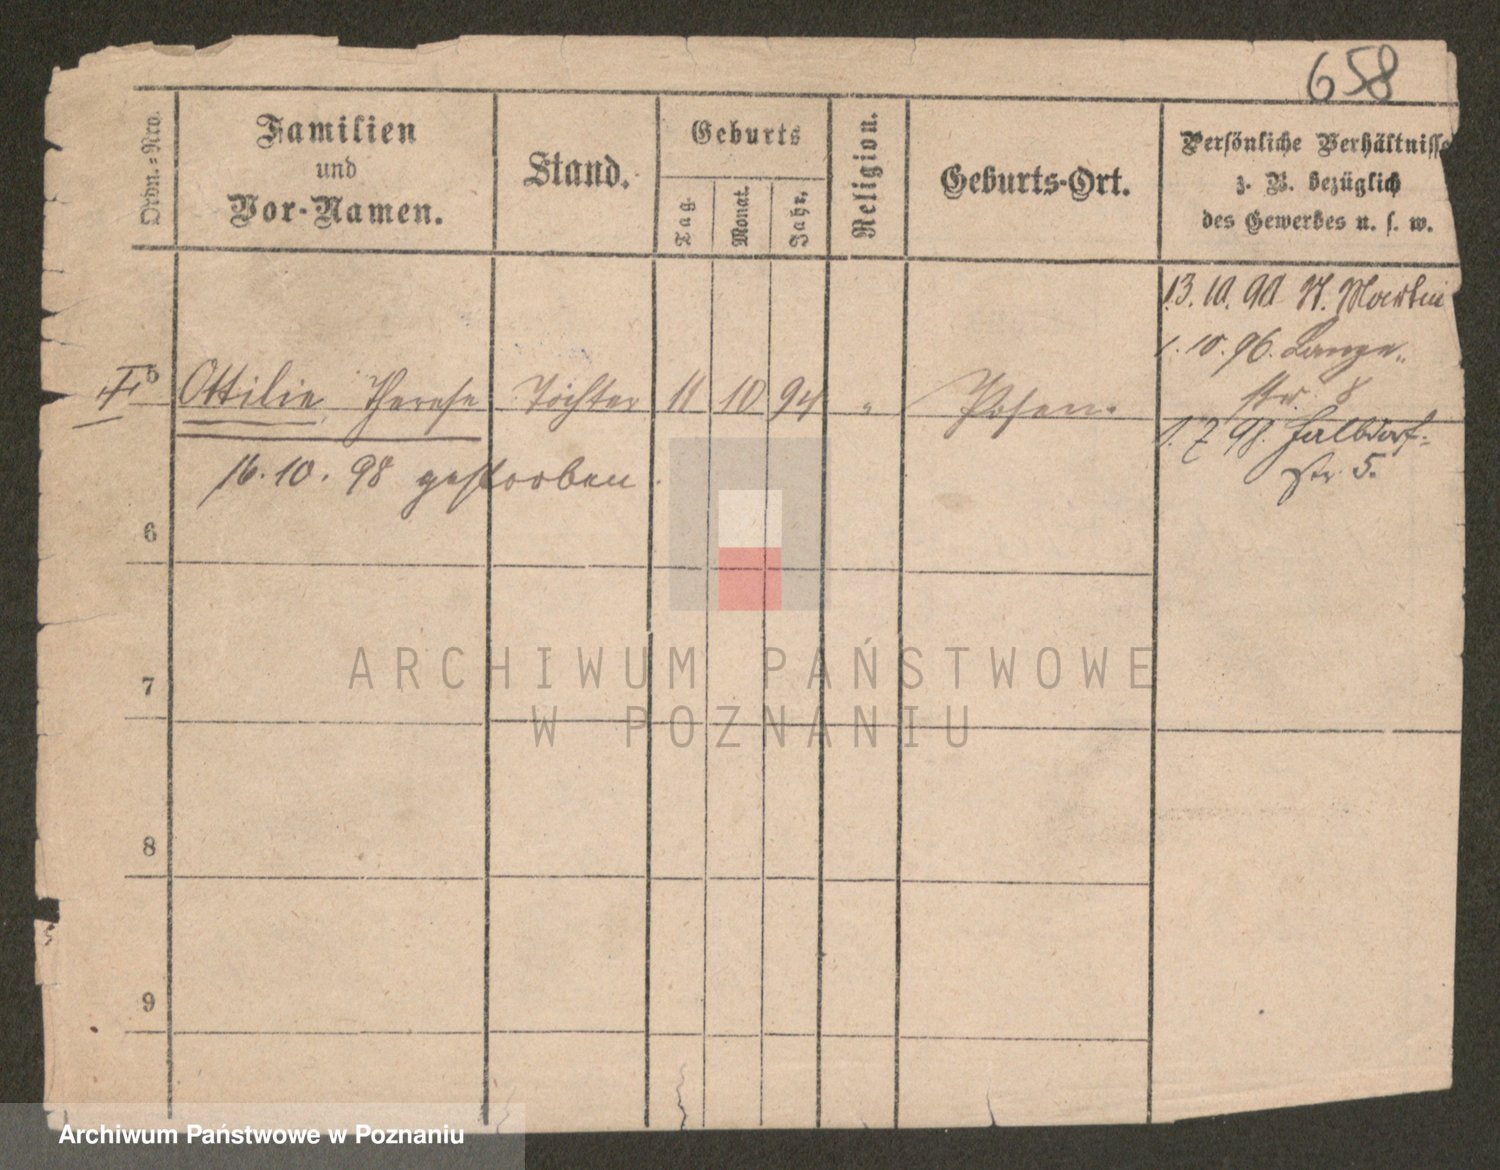 658
Ordn.-Nro.
Familien
und
Vor-Namen.
Stand.
Geburts
Tag.
Monat.
Jahr.
Religion.
Geburts-Ort.
Persönliche Verhältnisse
z. B. bezüglich
des Gewerbes u. s. w.
13. 10. 90 St. Martin
1. 10. 96. Lange-
str. 8
5 Ottilie Therese Tochter 11 10 94 " Posen.
1. 7 98. Halbdorf-
str. 5.
16. 10. 98 gestorben.
6
7
8
9
ARCHIWUM PAŃSTWOWE
W POZNANIU
Archiwum Państwowe w Poznaniu